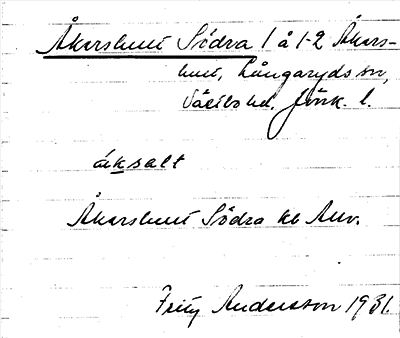 Åkarshult Södra 1 å 1-2 Åkars-
hult, Långaryds sn,
Västbo hd. Jönk. l.
åksalt
Åkarshult Södra kb Allv.
Fritz Andersson 1931.